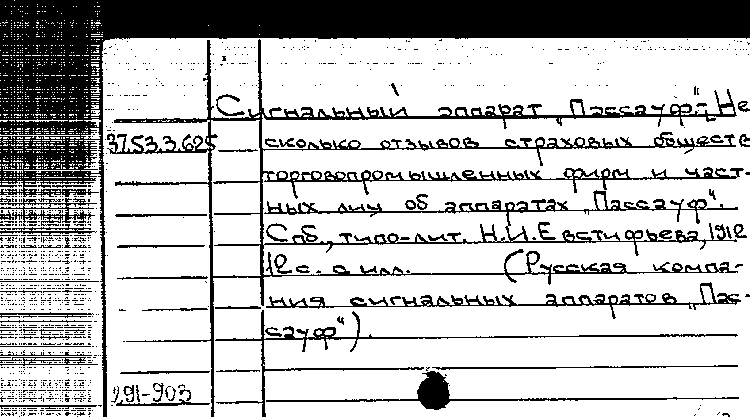 Сигнальный аппарат „Пассауф“. Не
37.53.3.625
сколько отзывов страховых обществ
торговопромышленных фирм и част-
ных лиц об аппаратах „Пассауф“.
Спб., типо-лит. Н.И.Евстифьева, 1912
12 с. с илл. (Русская компа-
ния сигнальных аппаратов „Пас-
сауф“).
291-903